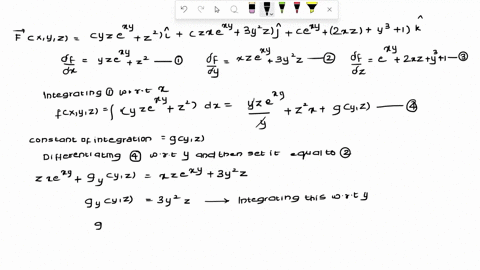 F⃗ (x,y,z) = (yze^{xy} + z²) î + (zxe^{xy} + 3y²z) ĵ + (e^{xy} + (2xz) + y³ + 1) k̂
df/dx = yze^{xy} + z² — ① df/dy = xze^{xy} + 3y²z — ② df/dz = e^{xy} + 2xz + y³ + 1 — ③
Integrating ① w.r.t x
f(x,y,z) = ∫ (yze^{xy} + z²) dx = yze^{xy}/y + z²x + g(y,z) — ④
constant of integration = g(y,z)
Differentiating ④ w.r.t y and then set it equal to ②
zxe^{xy} + g_y (y,z) = xze^{xy} + 3y²z
g_y (y,z) = 3y²z ⟶ Integrating this w.r.t y
g